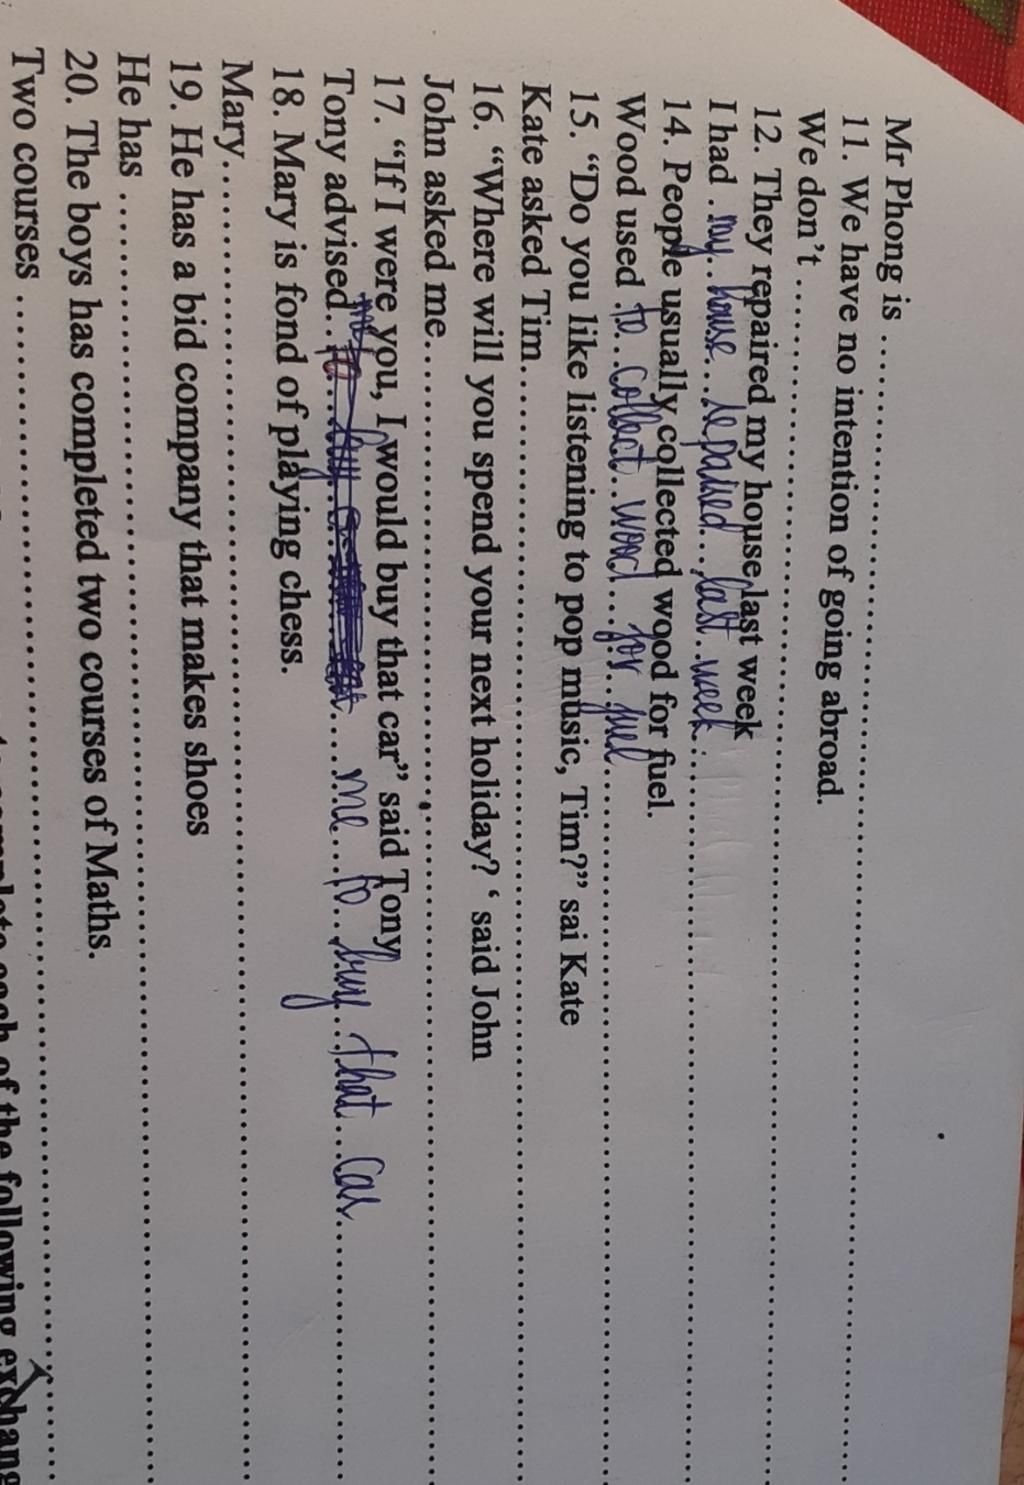 Mr Phong is ..............................
11. We have no intention of going abroad.
We don't ..............................
12. They repaired my house last week
I had my house repaired last week.
14. People usually collected wood for fuel.
Wood used to collect wood for fuel
15. “Do you like listening to pop music, Tim?” sai Kate
Kate asked Tim..............................
16. “Where will you spend your next holiday? ‘ said John
John asked me..............................
17. “If I were you, I would buy that car” said Tony
Tony advised me to buy that car.
18. Mary is fond of playing chess.
Mary..............................
19. He has a bid company that makes shoes
He has ..............................
20. The boys has completed two courses of Maths.
Two courses ..............................
complete each of the following exchang